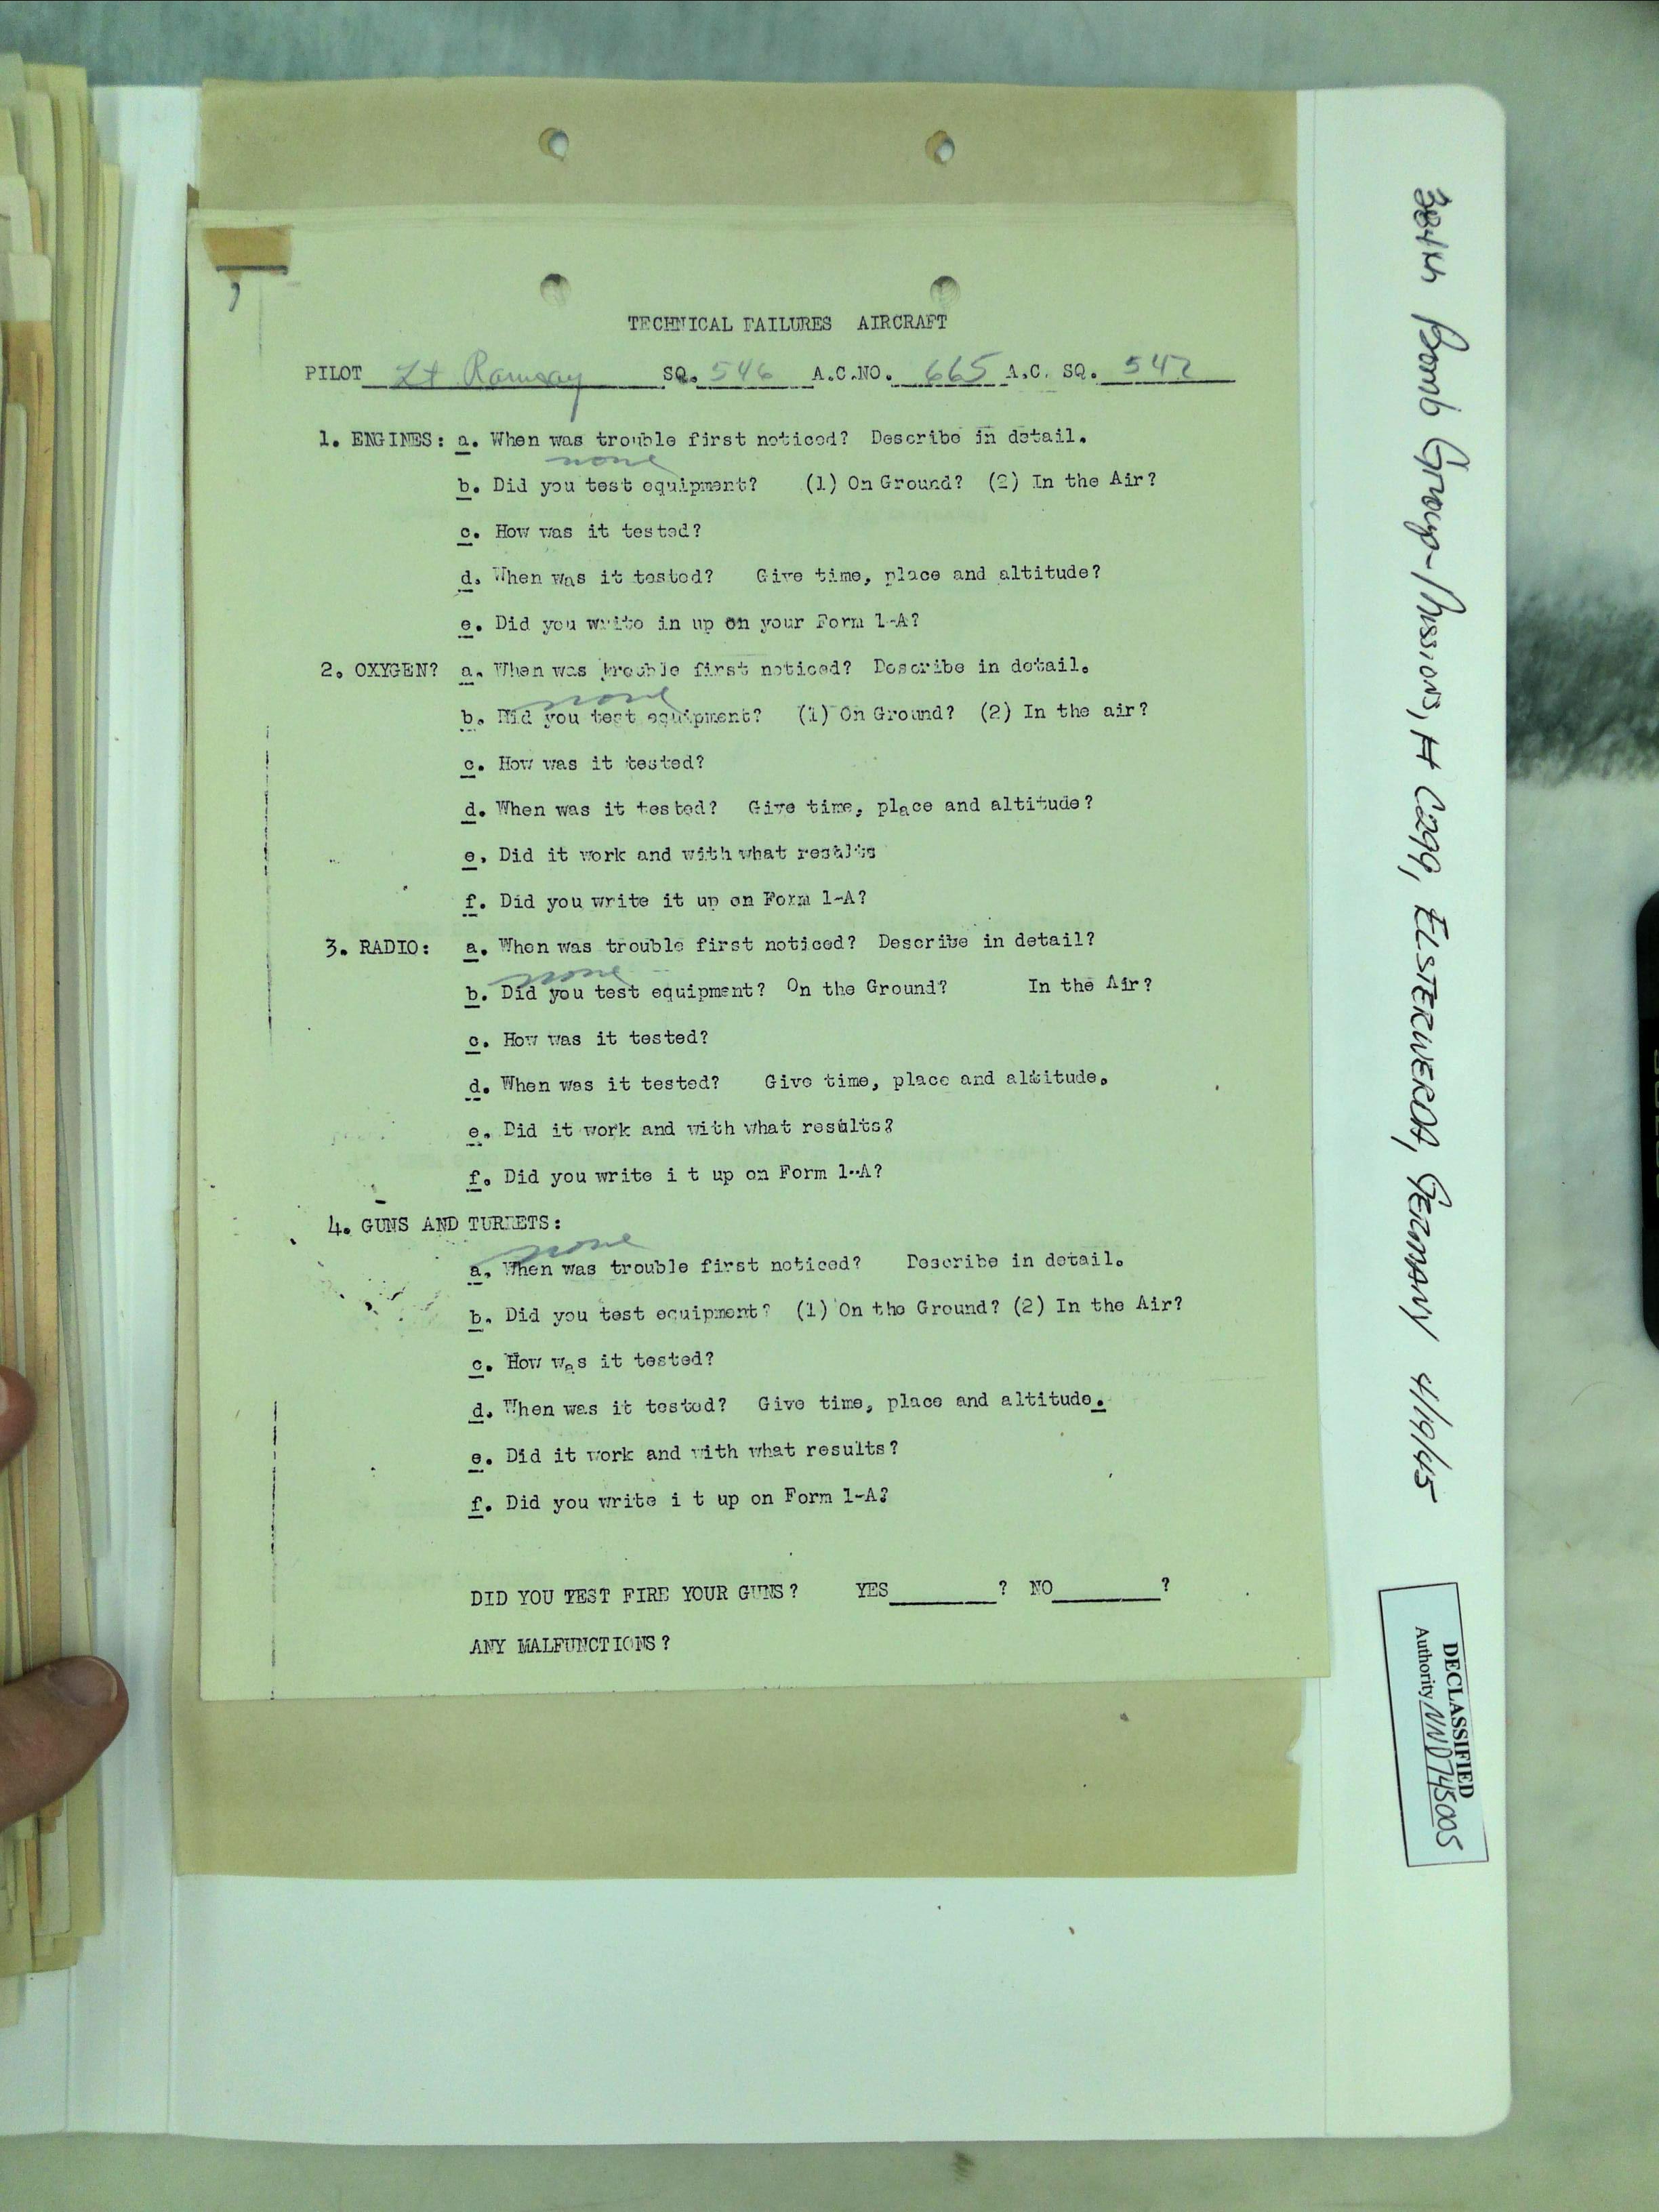 TECHNICAL FAILURES AIRCRAFT
PILOT Lt Ramsay SQ. 546 A.C.NO. 665 A.C. SQ. 547
1. ENGINES: a. When was trouble first noticed? Describe in detail.
none
b. Did you test equipment? (1) On Ground? (2) In the Air?
c. How was it tested?
d. When was it tested? Give time, place and altitude?
e. Did you write in up on your Form 1-A?
2. OXYGEN? a. When was trouble first noticed? Describe in detail.
none
b. Did you test equipment? (1) On Ground? (2) In the air?
c. How was it tested?
d. When was it tested? Give time, place and altitude?
e. Did it work and with what results
f. Did you write it up on Form 1-A?
3. RADIO: a. When was trouble first noticed? Describe in detail?
none
b. Did you test equipment? On the Ground? In the Air?
c. How was it tested?
d. When was it tested? Give time, place and altitude.
e. Did it work and with what results?
f. Did you write i t up on Form 1-A?
4. GUNS AND TURRETS:
none
a. When was trouble first noticed? Describe in detail.
b. Did you test equipment? (1) On the Ground? (2) In the Air?
c. How was it tested?
d. When was it tested? Give time, place and altitude.
e. Did it work and with what results?
f. Did you write i t up on Form 1-A?
DID YOU TEST FIRE YOUR GUNS? YES ? NO ?
ANY MALFUNCTIONS?
384th Bomb Group-Mission, # C299, ELSTERWERDA, GERMANY 4/19/45
DECLASSIFIED
Authority NND745005